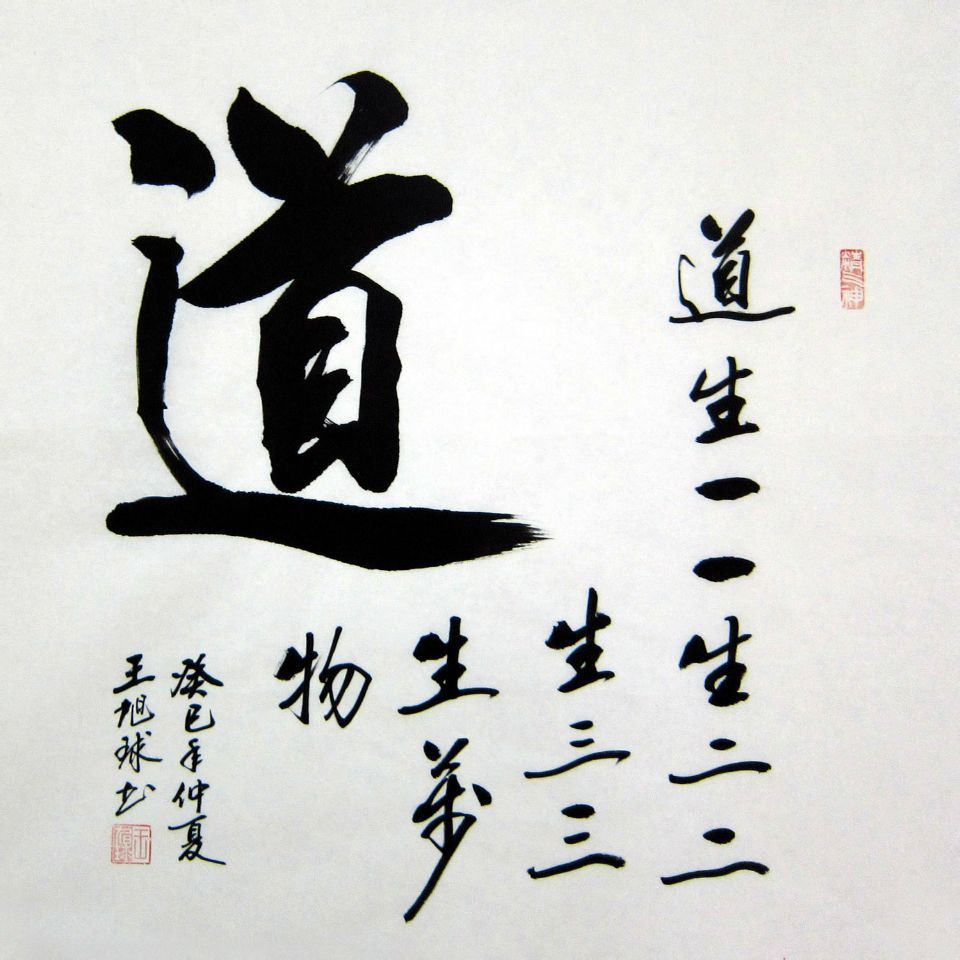 道
精气神
道生一一生二二
生三三
生萬
物
癸巳年仲夏
王旭球书